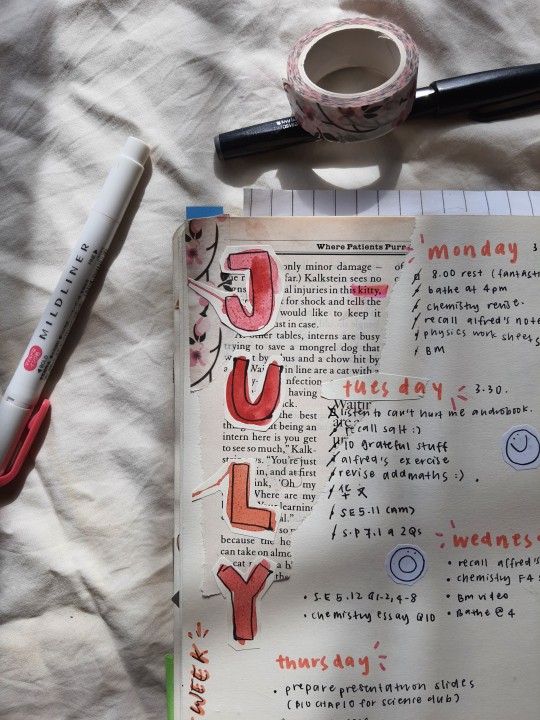 MILDLINER
Where Patients Purr
only minor damage –
far.) Kalkstein sees no
al injuries in this kitty,
t for shock and tells the
would like to keep it
ust in case.
other tables, interns are busy
trying to save a mongrel dog that
bus and a chow hit by
in line are a cat with a
infection
having
the best
being an
intern here is you get
to see so much," Kalk-
says. "You're just
in, and at first
ink, 'Oh my
Where are my
learning
because the
can take on almo
JULY
WEEK
monday
8.00 rest
bathe at 4pm
chemistry revise.
recall alfred's note
physics work sheets
BM
tuesday 3.30.
listen to can't hurt me audiobook.
recall salt :)
10 grateful stuff
alfred's exercise
revise addmaths :)
SE 5.11 (AM)
S.P 7.1 a 2Qs
wednes
recall alfred's
chemistry F4
BM video
Bathe @ 4
• S.E 5.12 Q1-2, 4-8
• chemistry essay Q10
thursday
• prepare presentation slides
(BIO CHAP 10 for science club)